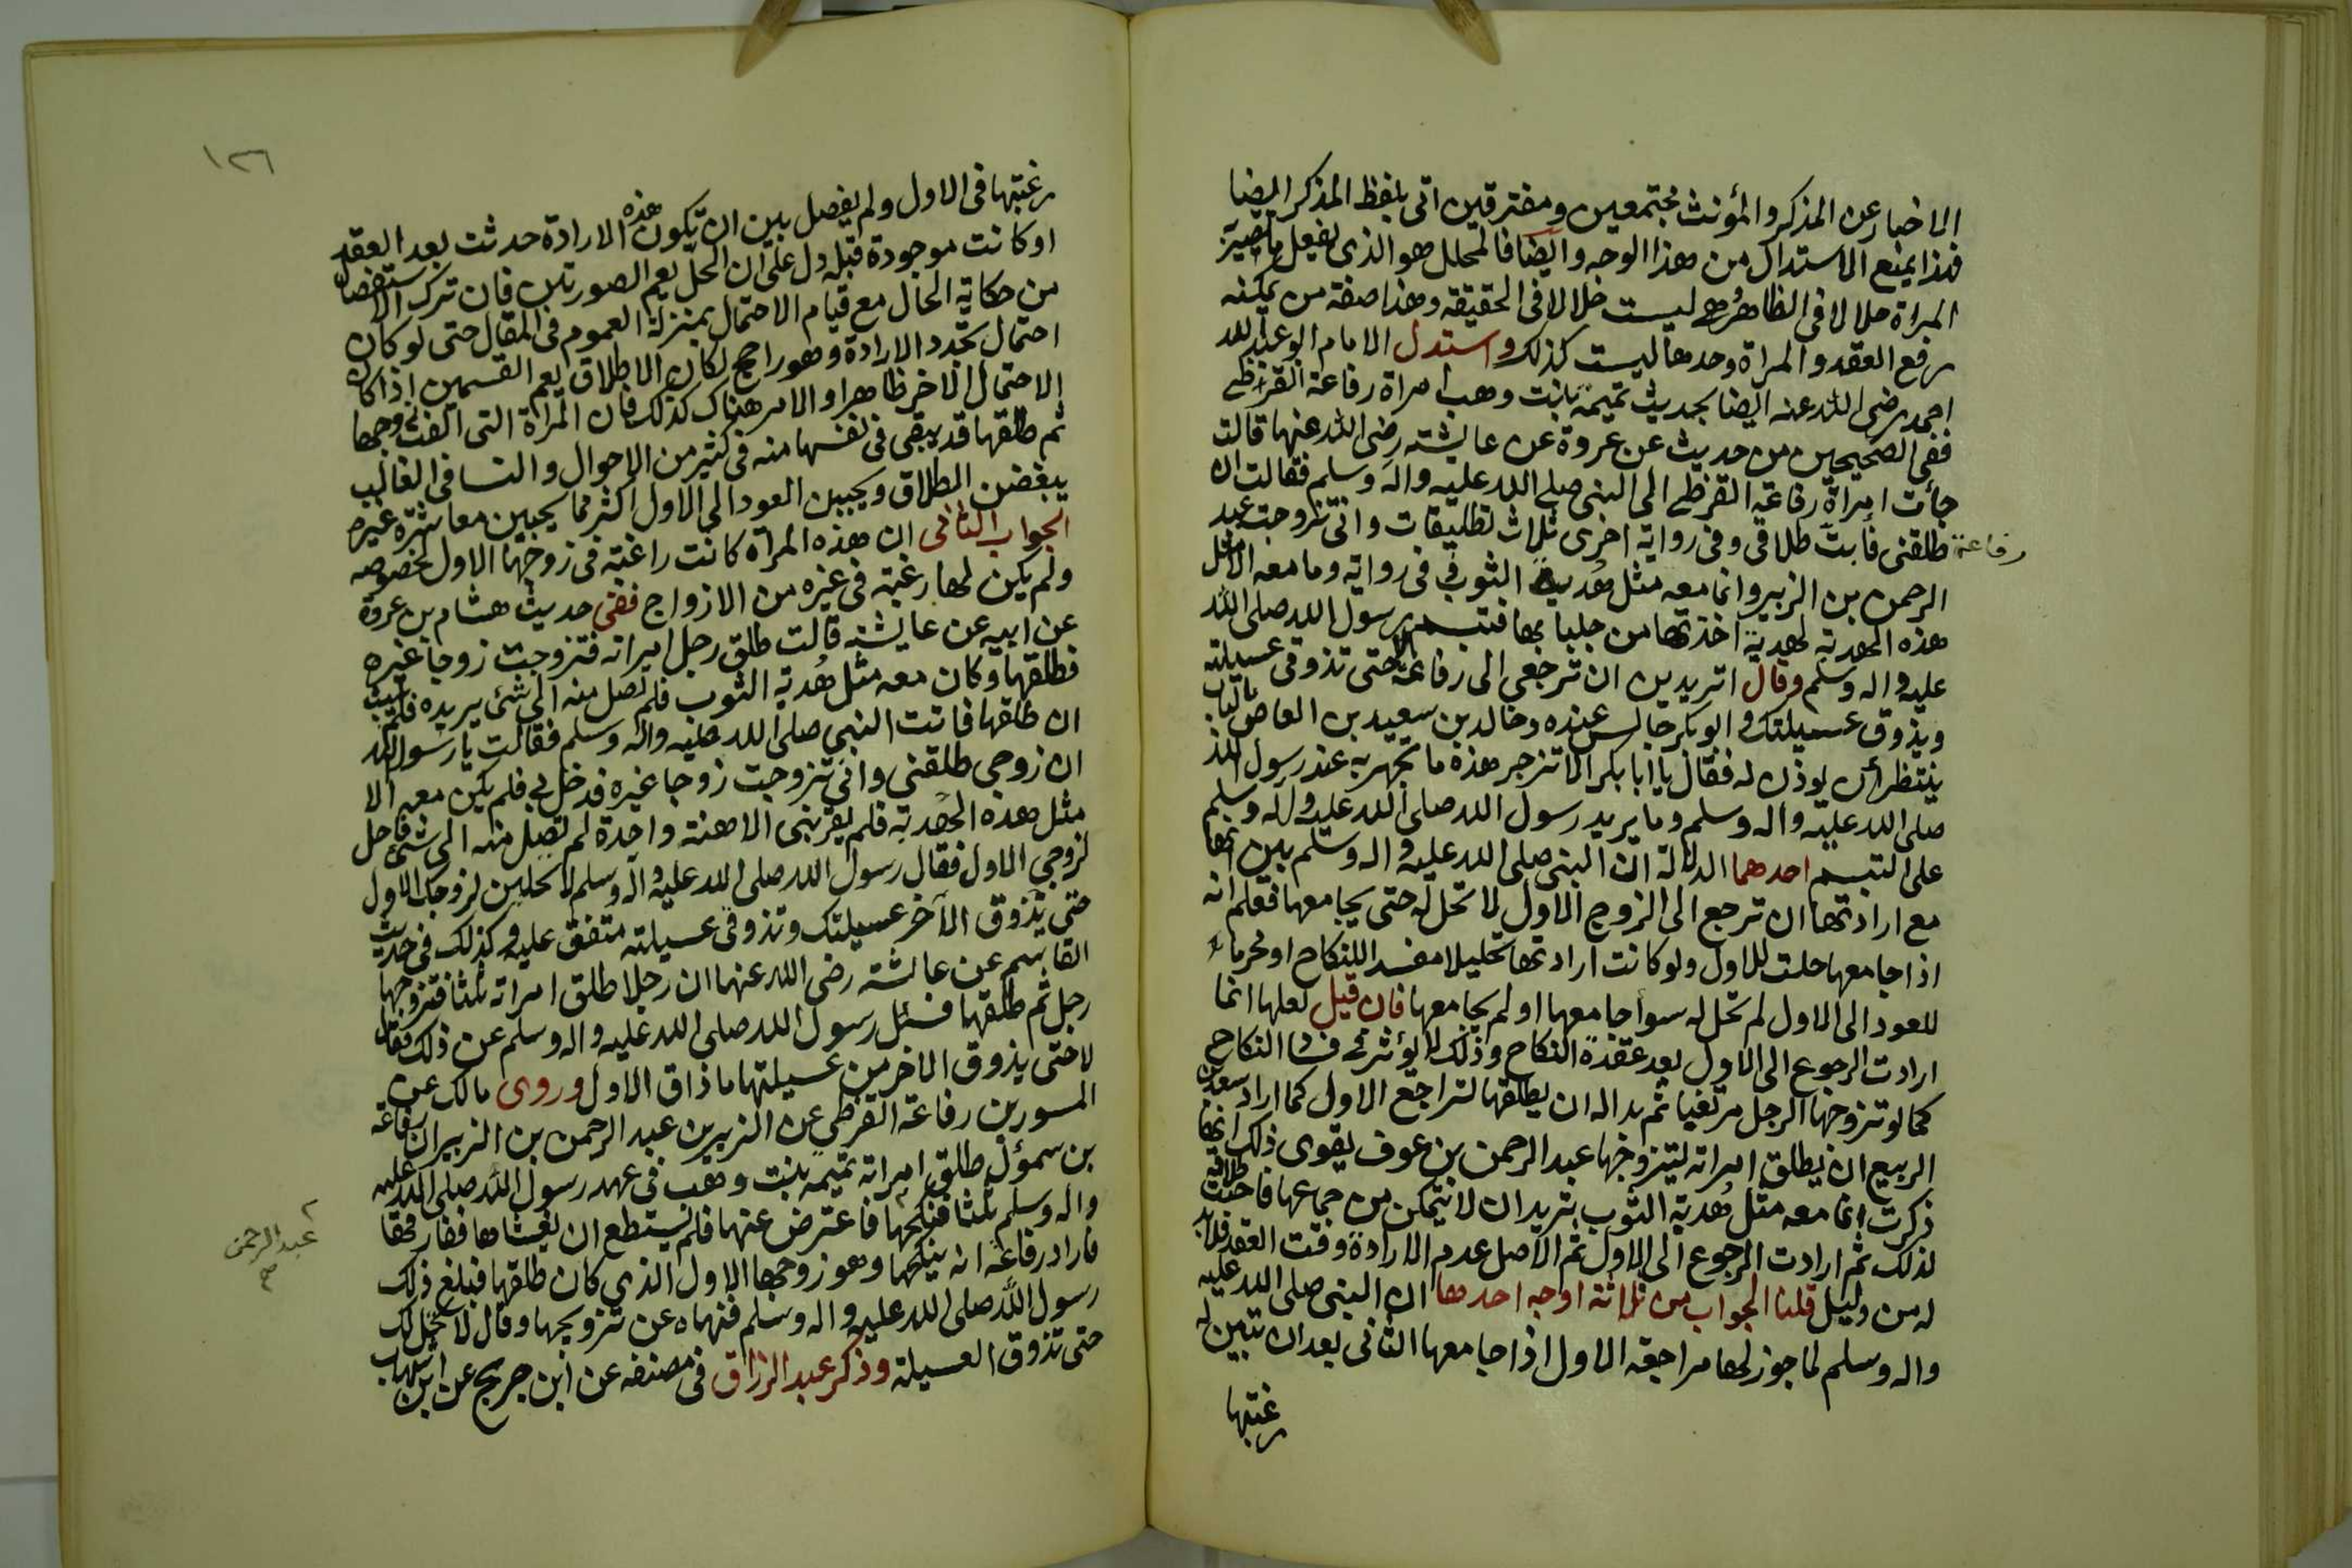 الاخبار عن المذكر والمؤنث مجتمعين ومفترقين اتى بلفظ المذكر ايضا
فهذا يمنع الاستدال من هذا الوجه وايضا فالمحلل هو الذى يفعل ما تصير به
المراة حلالا فى الظاهر وهى ليست حلالا فى الحقيقة وهذا صفة من يمكنه
رفع العقد والمراة وحدها ليست كذلك واستدل الامام ابو عبد الله
احمد رضى الله عنه ايضا بحديث تميمة بنت وهب امراة رفاعة القرظى
ففى الصحيحين من حديث عن عروة عن عايشة رضى الله عنها قالت
جأت امراة رفاعة القرظى الى النبى صلى الله عليه واله وسلم فقالت ان
رفاعة طلقنى فأبت طلاقى وفى رواية اخرى ثلاث تطليقات وانى تزوجت عبد
الرحمن بن الزبير وانما معه مثل هُدبة الثوب فى رواية وما معه الا مثل
هذه الهدبة لهدبة اخذتها من جلبابها فتبسم رسول الله صلى الله
عليه واله وسلم وقال اتريدين ان ترجعى الى رفاعة لا حتى تذوقى عسيلته
ويذوق عسيلتك وابو بكر جالس عنده وخالد بن سعيد بن العاص بالباب
ينتظر أن يوذن له فقال يا ابا بكر الا تزجر هذه ما تجهر به عند رسول الله
صلى الله عليه واله وسلم وما يريد رسول الله صلى الله عليه واله وسلم
على التبسم احدهما الدلالة ان النبى صلى الله عليه واله وسلم بين انها
مع ارادتها ان ترجع الى الزوج الاول لا تحل له حتى يجامعها فعلم انه
اذا جامعها حلت للاول ولو كانت ارادتها تحليلا مفسدا للنكاح او محرما
للعود الى الاول لم تحل له سوأ جامعها او لم يجامعها فان قيل لعلها انما
ارادت الرجوع الى الاول بعد عقدة النكاح وذلك لا يؤثر فى فساد النكاح
كما لو تزوجها الرجل مرتغبا ثم بدا له ان يطلقها لتراجع الاول كما اراد سعد بن
الربيع ان يطلق امراته ليتزوجها عبد الرحمن بن عوف يقوى ذلك انها
ذكرت انما معه مثل هُدبة الثوب تريد ان لا يتمكن من جماعها فاحبت طلاقه
لذلك ثم ارادت الرجوع الى الاول ثم الاصل عدم الارادة وقت العقد فلابد
له من دليل قلنا الجواب من ثلاثة اوجه احدها ان النبى صلى الله عليه
واله وسلم لما جوز لها مراجعة الاول اذا جامعها الثانى بعد ان تبين له
رغبتها
١٢٦
رغبتها فى الاول ولم يفصل بين ان تكون هذه الارادة حدثت بعد العقد
او كانت موجودة قبله دل على ان الحل يعم الصورتين فان ترك الاستفصال
من حكاية الحال مع قيام الاحتمال بمنزلة العموم فى المقال حتى لو كان
احتمال تجدد الارادة وهو راجح لكان الاطلاق يعم القسمين اذا كان
الاحتمال الاخر ظاهرا والامر هناك كذلك فان المرأة التى الفت زوجها
ثم طلقها قد يبقى فى نفسها منه فى كثير من الاحوال والنسا فى الغالب
يبغضن الطلاق ويحببن العود الى الاول اكثر مما يحببن معاشرة غيره
الجواب الثانى ان هذه المرأة كانت راغبة فى زوجها الاول بخصوصه
ولم يكن لها رغبة فى غيره من الازواج ففى حديث هشام بن عروة
عن ابيه عن عايشة قالت طلق رجل امراته فتزوجت زوجا غيره
فطلقها وكان معه مثل هُدبة الثوب فلم تصل منه الى شئ يريده فلم يلبث
ان طلقها فاتت النبى صلى الله عليه واله وسلم فقالت يا رسول الله
ان زوجى طلقنى وانى تزوجت زوجا غيره فدخل بى فلم يكن معه الا
مثل هذه الهدبة فلم يقربنى الا هنة واحدة لم تصل منه الى شئ فأحل
لزوجى الاول فقال رسول الله صلى الله عليه واله وسلم لا تحلين لزوجك الاول
حتى يذوق الآخر عسيلتك وتذوقى عسيلته متفق عليه وكذلك فى حديث
القاسم عن عائشة رضى الله عنها ان رجلا طلق امراته ثلثا فتزوجها
رجل ثم طلقها فسئل رسول الله صلى الله عليه واله وسلم عن ذلك فقال
لا حتى يذوق الاخر من عسيلتها ما ذاق الاول وروى مالك عن
المسور بن رفاعة القرظى عن الزبير بن عبد الرحمن بن الزبير ان رفاعة
بن سموؤل طلق امراته تميمة بنت وهب فى عهد رسول الله صلى الله عليه
واله وسلم ثلثا فنكحها فاعترض عنها فلم يستطع ان يغشاها ففارقها
عبد الرحمن
فاراد رفاعة انه ينكحها وهو زوجها الاول الذى كان طلقها فبلغ ذلك
رسول الله صلى الله عليه واله وسلم فنهاه عن تزويجها وقال لا تحل لك
حتى تذوق العسيلة وذكر عبد الرزاق فى مصنفه عن ابن جريج عن ابن شهاب